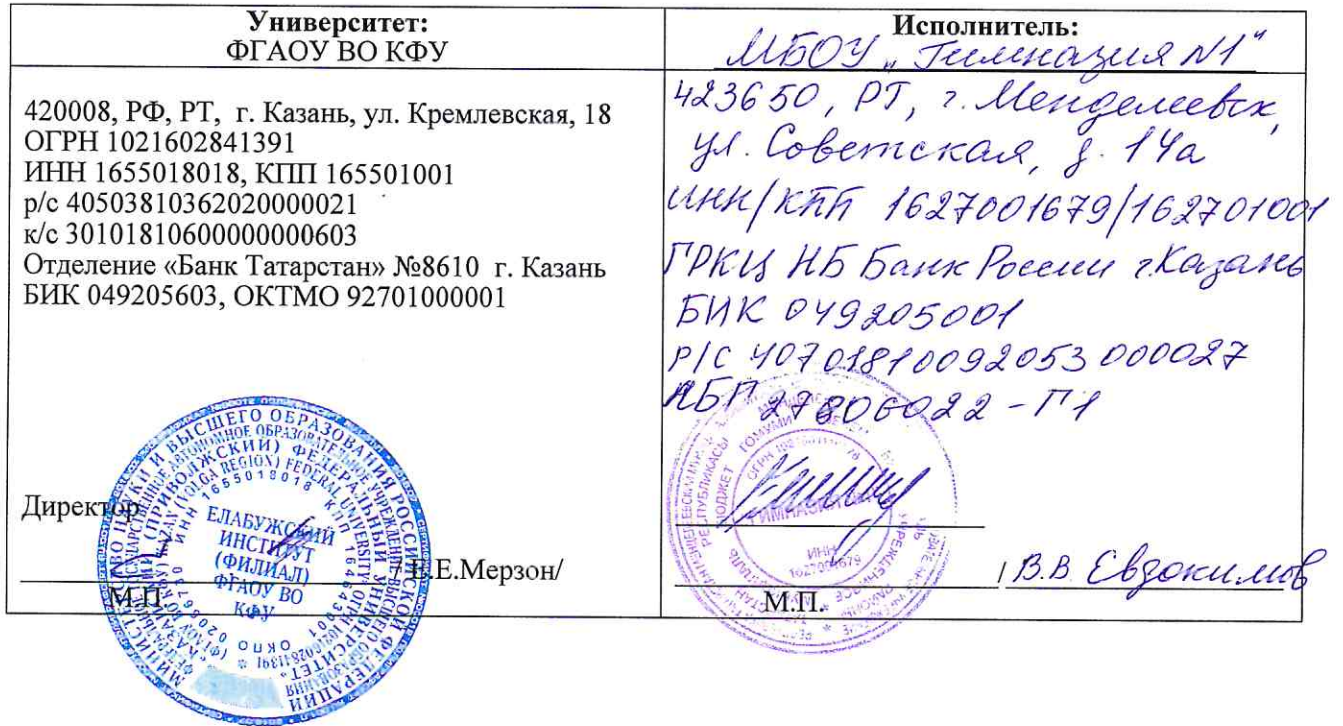 Университет:
ФГАОУ ВО КФУ
420008, РФ, РТ, г. Казань, ул. Кремлевская, 18
ОГРН 1021602841391
ИНН 1655018018, КПП 165501001
р/с 40503810362020000021
к/с 30101810600000000603
Отделение «Банк Татарстан» №8610 г. Казань
БИК 049205603, ОКТМО 92701000001
Директор
/ Е.Е.Мерзон/
М.П.
ЕЛАБУЖСКИЙ
ИНСТИТУТ
(ФИЛИАЛ)
ФГАОУ ВО
КФУ
Исполнитель:
МБОУ „Гимназия N1"
423650, РТ, г. Менделеевск,
ул. Советская, д. 14а
ИНН/КПП 1627001679/162701001
ГРКЦ НБ Банк России г.Казань
БИК 049205001
Р/С 40701810092053000027
ЛБГ 27806022-Г1
ГИМНАЗИЯ
ИНН
1627001679
/ В.В. Евдокимов
М.П.